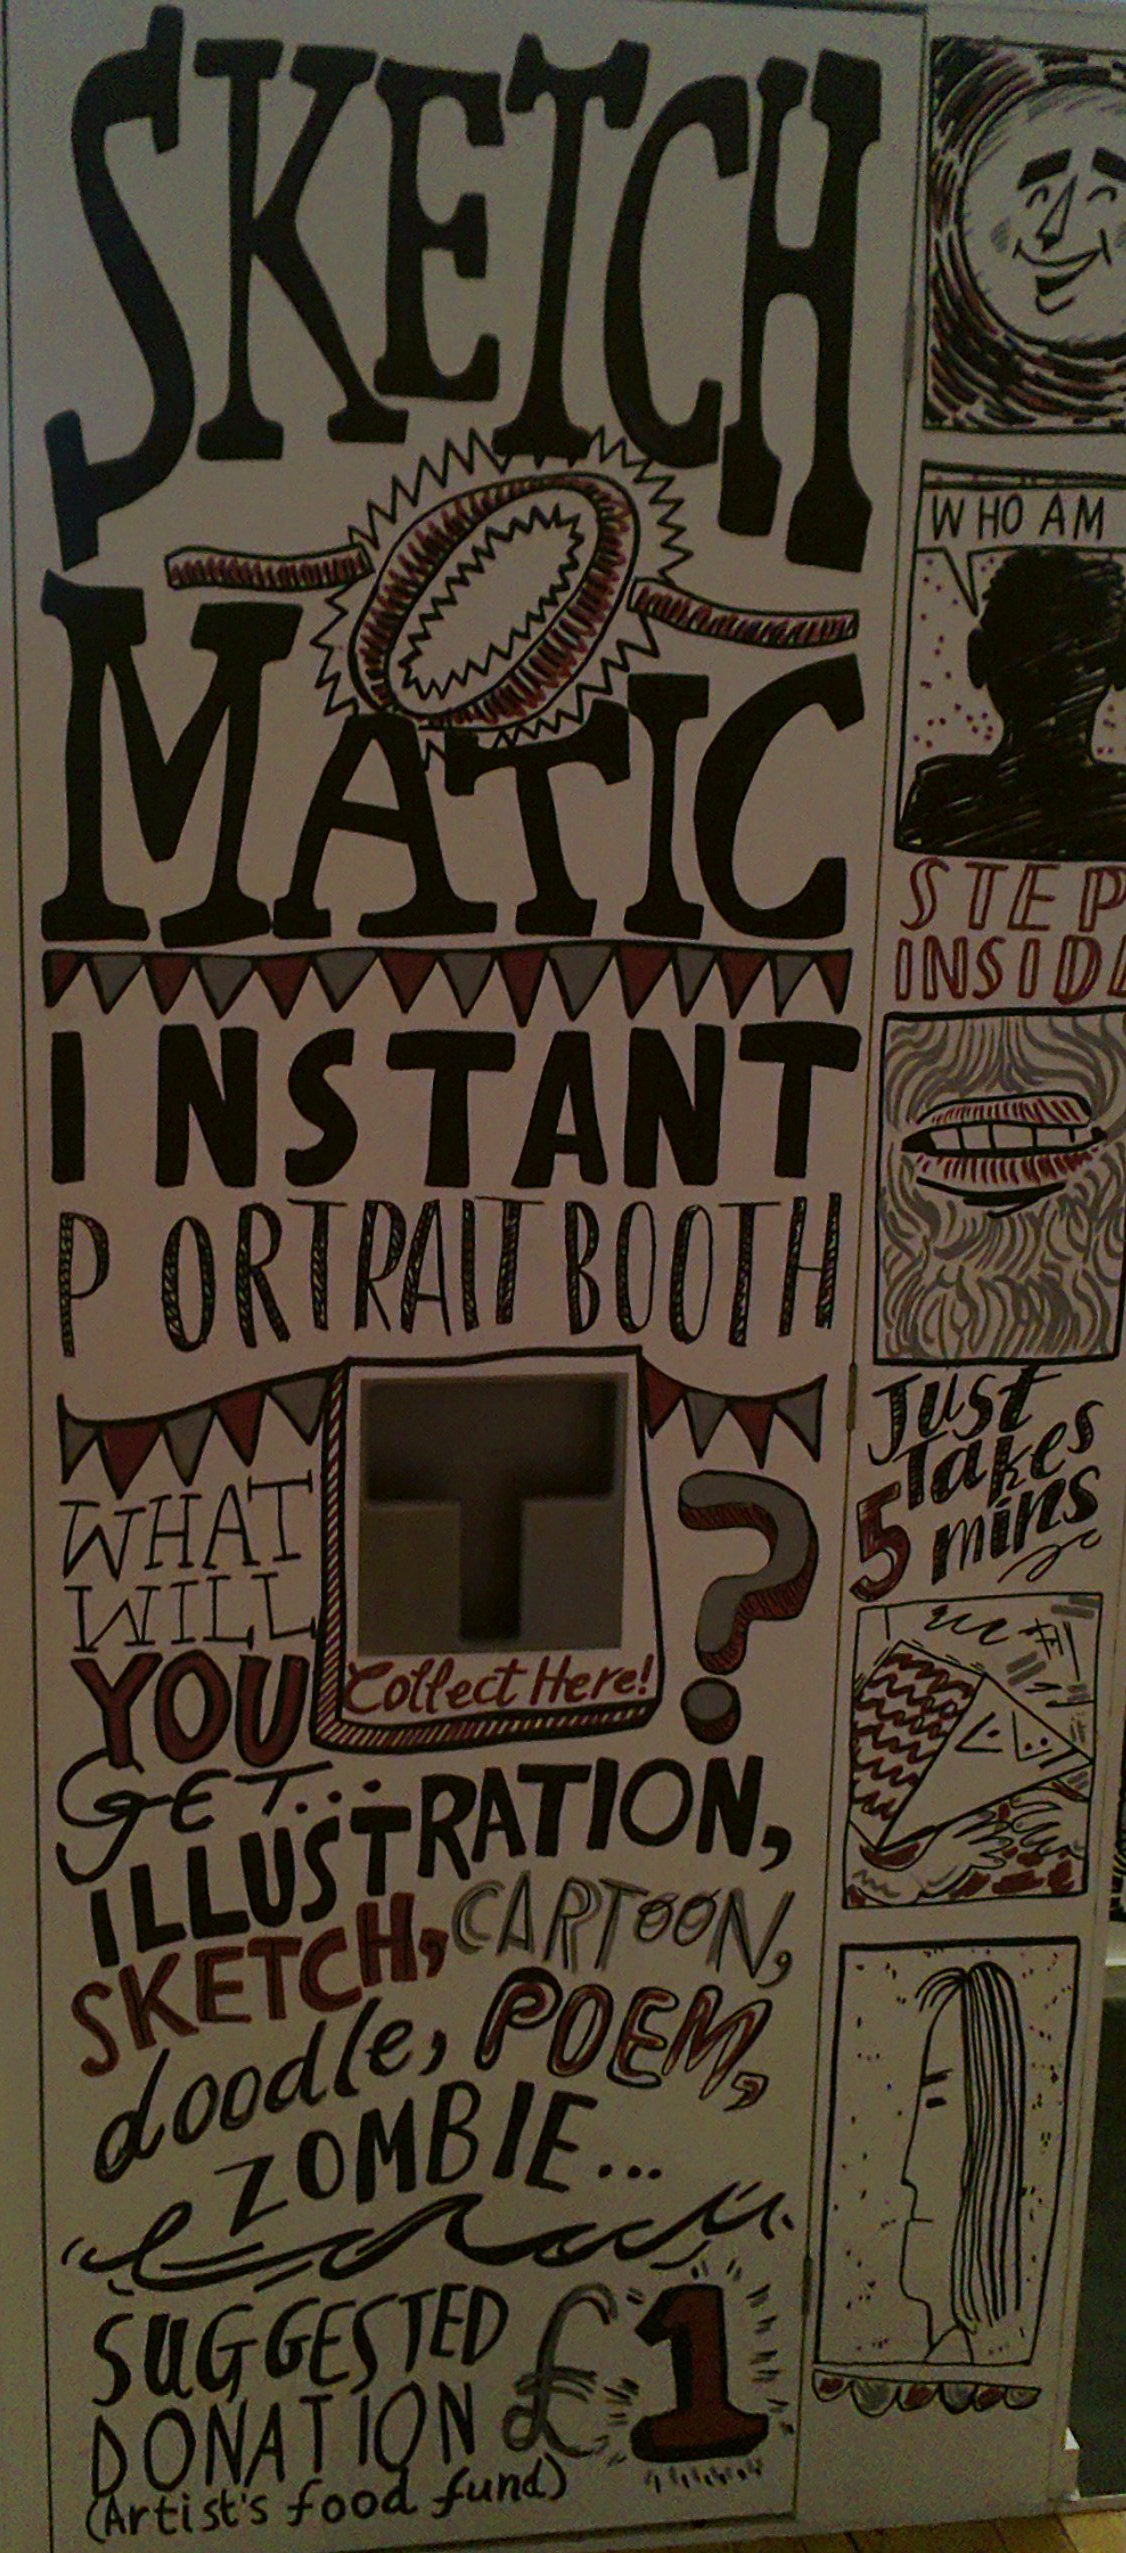 SKETCH
O
MATIC
INSTANT
PORTRAIT BOOTH
WHAT
WILL
YOU
GET...
Collect Here!
?
ILLUSTRATION,
SKETCH, CARTOON,
doodle, POEM,
ZOMBIE...
SUGGESTED
DONATION £1
(Artist's food fund)
WHO AM
STEP
INSID
Just
Takes
5 mins